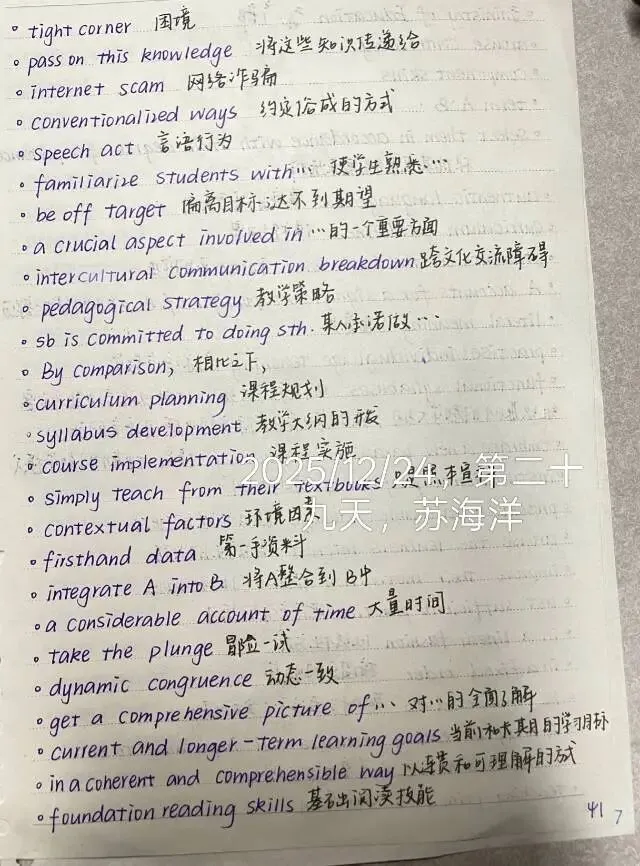 • tight corner 困境
• pass on this knowledge 将这些知识传递给
• internet scam 网络诈骗
• conventionalized ways 约定俗成的方式
• speech act 言语行为
• familiarize students with... 使学生熟悉...
• be off target 偏离目标;达不到期望
• a crucial aspect involved in ...的一个重要方面
• intercultural communication breakdown 跨文化交流障碍
• pedagogical strategy 教学策略
• sb is committed to doing sth. 某人承诺做...
• By comparison, 相比之下,
• curriculum planning 课程规划
• syllabus development 教学大纲的开发
• course implementation 课程实施
• simply teach from their textbooks 只是照本宣科
• contextual factors 环境因素
• firsthand data 第一手资料
• integrate A into B 将A整合到B中
• a considerable account of time 大量时间
• take the plunge 冒险一试
• dynamic congruence 动态一致
• get a comprehensive picture of... 对...的全面了解
• current and longer-term learning goals 当前和长期的学习目标
• in a coherent and comprehensible way 以连贯和可理解的方式
• foundation reading skills 基础阅读技能
41 7
2025/12/24,第二十
九天,苏海洋